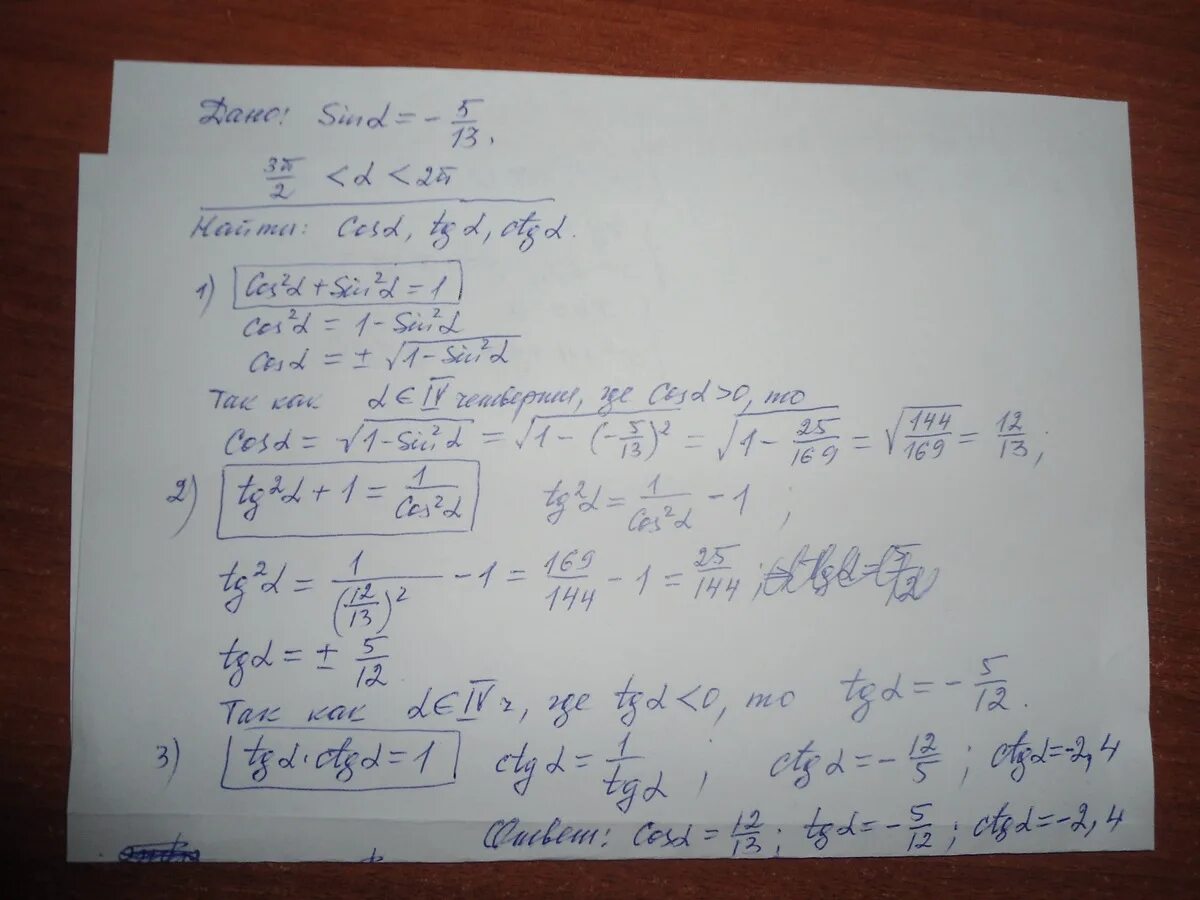 Дано: Sinα = - 5/13,
3π/2 < α < 2π
Найти: Cosα, tgα, ctgα.
1) Cos²α + Sin²α = 1
Cos²α = 1 - Sin²α
Cosα = ± √(1 - Sin²α)
Так как α ∈ IV четверти, где Cosα > 0, то
Cosα = √(1 - Sin²α) = √(1 - (-5/13)²) = √(1 - 25/169) = √(144/169) = 12/13;
2) tg²α + 1 = 1/Cos²α tg²α = 1/Cos²α - 1 ;
tg²α = 1/(12/13)² - 1 = 169/144 - 1 = 25/144 ;
tgα = ± 5/12
Так как α ∈ IV ч, где tgα < 0, то tgα = - 5/12.
3) tgα · ctgα = 1 ctgα = 1/tgα ; ctgα = - 12/5 ; ctgα = -2,4
Ответ: Cosα = 12/13 ; tgα = - 5/12 ; ctgα = -2,4